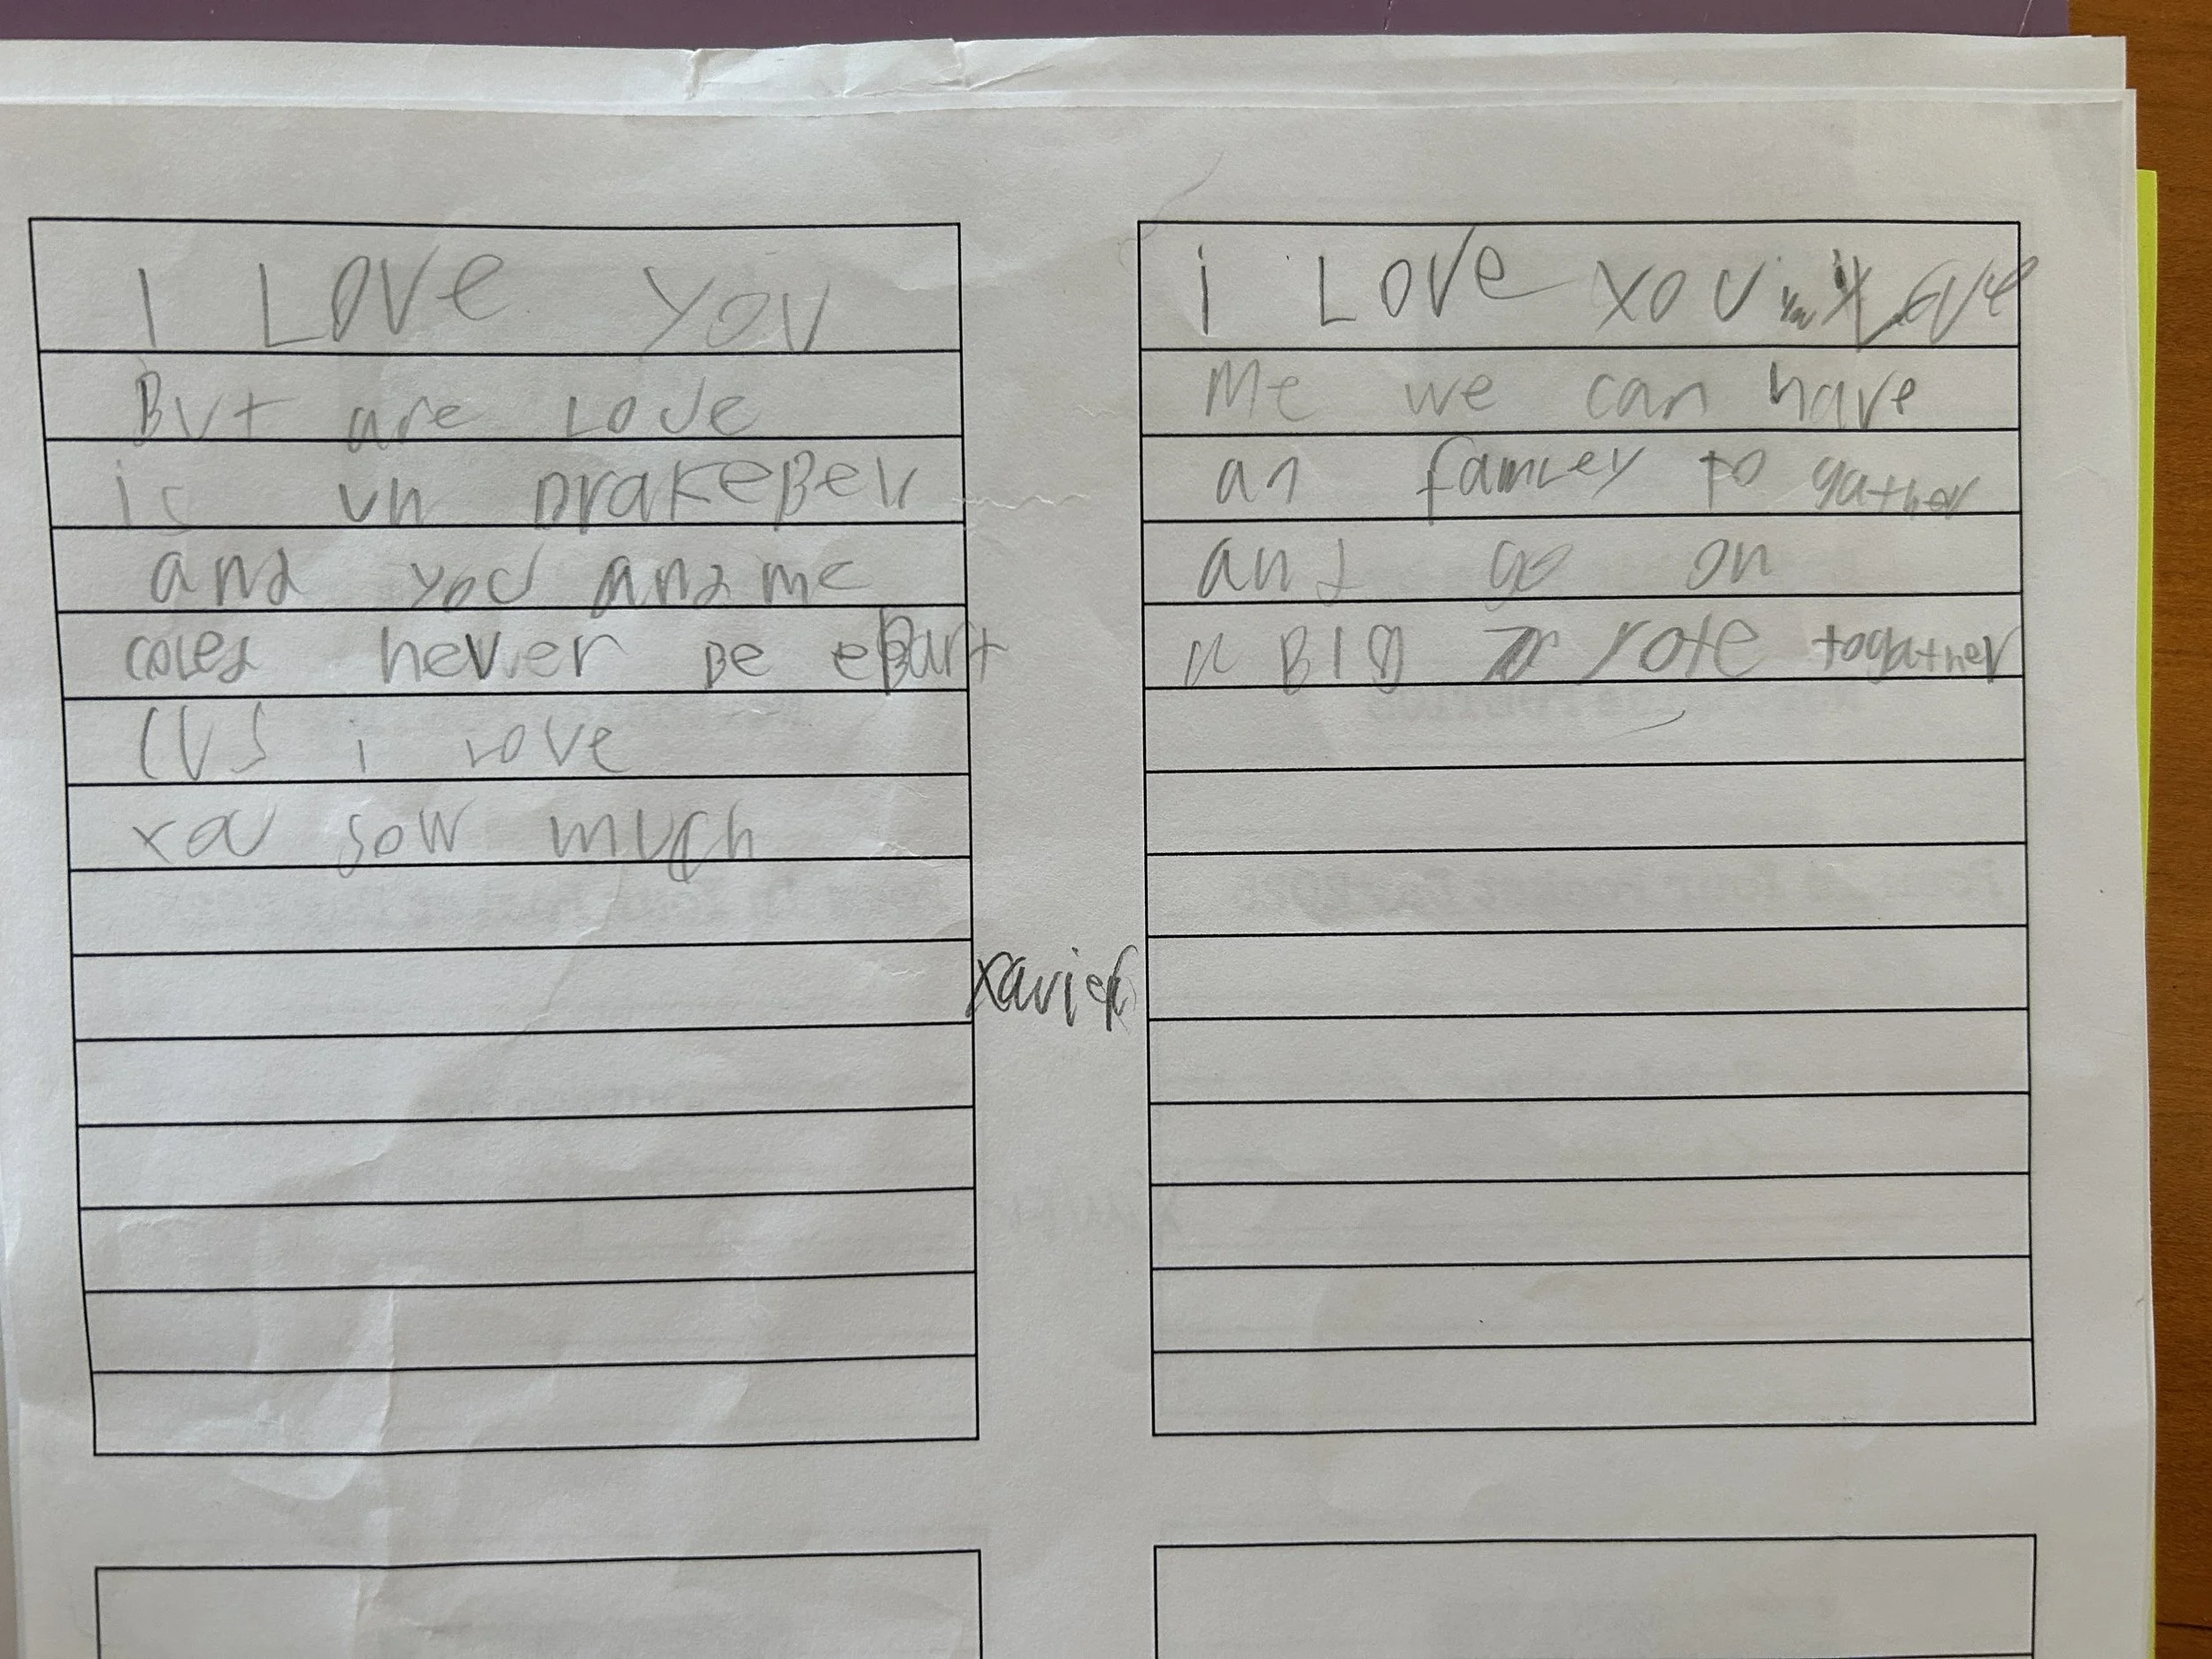 I LOVE YOU
BUt are LOVE
is un BrakeBel
and you and me
coled never Be eBart
CUS i LOVE
you sow much
i LOVE YOU LOVE
Me we can have
an famley to gather
and go on
a BIG rote togather
Xavier